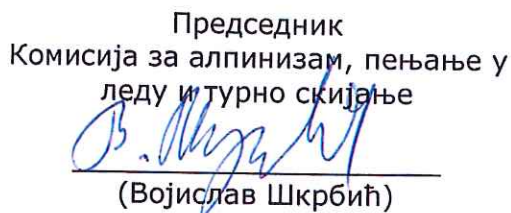 Председник
Комисија за алпинизам, пењање у
леду и турно скијање
(Војислав Шкрбић)